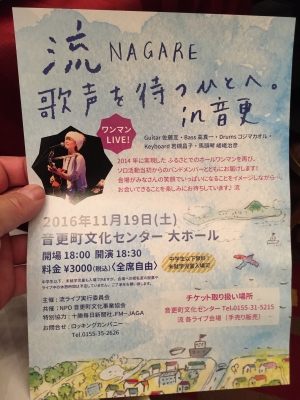 流 NAGARE
歌声を待つひとへ。
in音更
ワンマン
LIVE!
Guitar 佐藤亙・Bass 英真一・Drums コジマカオル・
Keyboard 岩槻昌子・馬頭琴 嵯峨治彦
2014年に実現した ふるさとでのホールワンマンを再び、
ソロ活動当初からのバンドメンバーとともにお届けします!
会場がみなさんの笑顔でいっぱいになることをイメージしながら…
お会いできることを楽しみにお待ちしています♪ 流
2016年11月19日(土)
音更町文化センター 大ホール
開場 18:00 開演 18:30
料金 ¥3000(税込)〈全席自由〉
中学生以下無料!
未就学児童入場可
主催:流ライブ実行委員会
共催:NPO 音更町文化事業協会
特別協力:十勝毎日新聞社、FM-JAGA
お問合せ:ロッキングカンパニー
Tel.0155-35-2626
チケット取り扱い場所
音更町文化センター Tel.0155-31-5215
流 各ライブ会場(手売り販売)